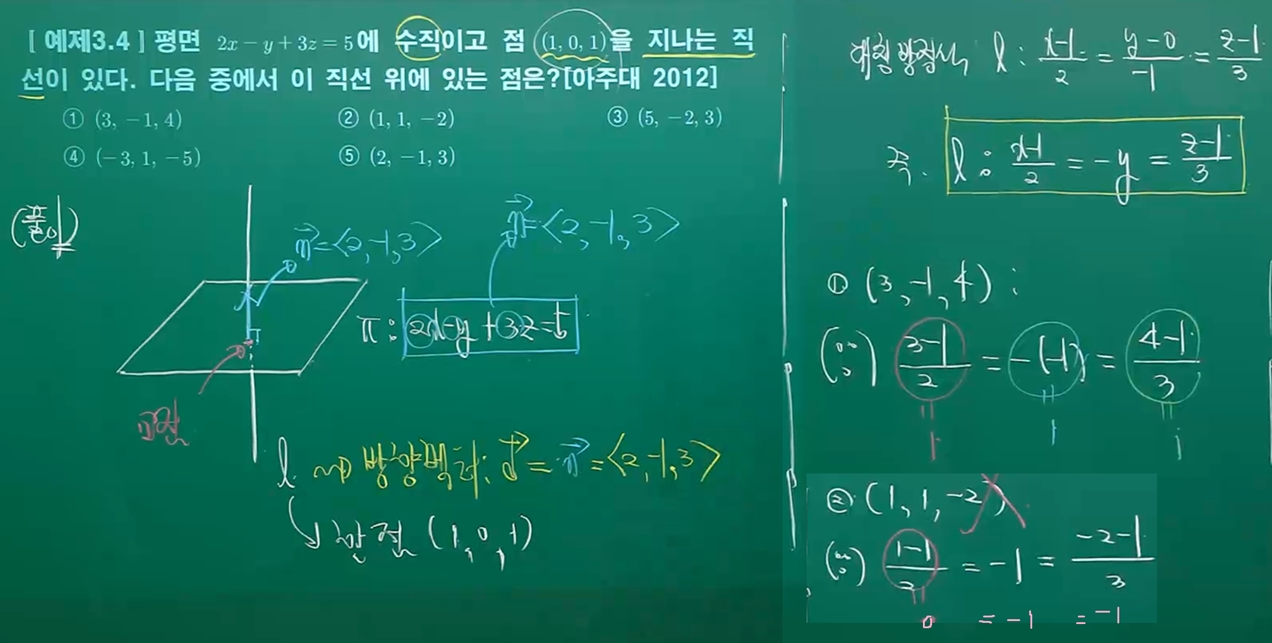 [ 예제3.4 ] 평면 2x − y + 3z = 5에 수직이고 점 (1, 0, 1)을 지나는 직
선이 있다. 다음 중에서 이 직선 위에 있는 점은?[아주대 2012]
① (3, −1, 4) ② (1, 1, −2) ③ (5, −2, 3)
④ (−3, 1, −5) ⑤ (2, −1, 3)
(풀이)
n = <2, -1, 3>
n = <2, -1, 3>
π : 2x-y+3z=5
교점
l ⇝ 방향벡터: d = n = <2, -1, 3>
↳ 한 점 (1, 0, 1)
대칭방정식 l : x-1/2 = y-0/-1 = z-1/3
즉. l : x-1/2 = -y = z-1/3
① (3, -1, 4) :
(∵) 3-1/2 = -(-1) = 4-1/3
1 1 1
② (1, 1, -2)
(∵) 1-1/2 = -1 = -2-1/3
0 = -1 = -1